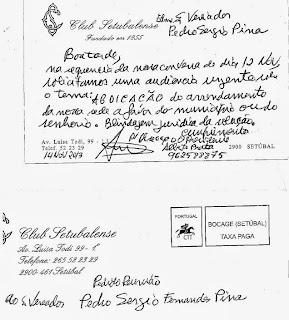 Club Setubalense
Fundado em 1855
Exmo Sr Vereador
Pedro Sergio Pina
Boa tarde,
na sequencia da nossa conversa do dia 12 Nov,
solicitamos uma audiencia urgente sobre
o tema: ABDICAÇÃO do arrendamento
da nossa sede a favor do municipio ou do
senhorio. Blindagem juridica da relação.
cumprimentos
O Presidente
Av. Luisa Todi, 99 -
Telef. 52 23 29
2900 SETÚBAL
962588875
PORTUGAL
CTT
BOCAGE (SETÚBAL)
TAXA PAGA
Club Setubalense
Av. Luisa Todi 99 - 1º
Telefone: 265 52 23 29
2900-461 Setúbal
Pedido Reunião
ao Sr Vereador Pedro Sergio Fernandes Pina